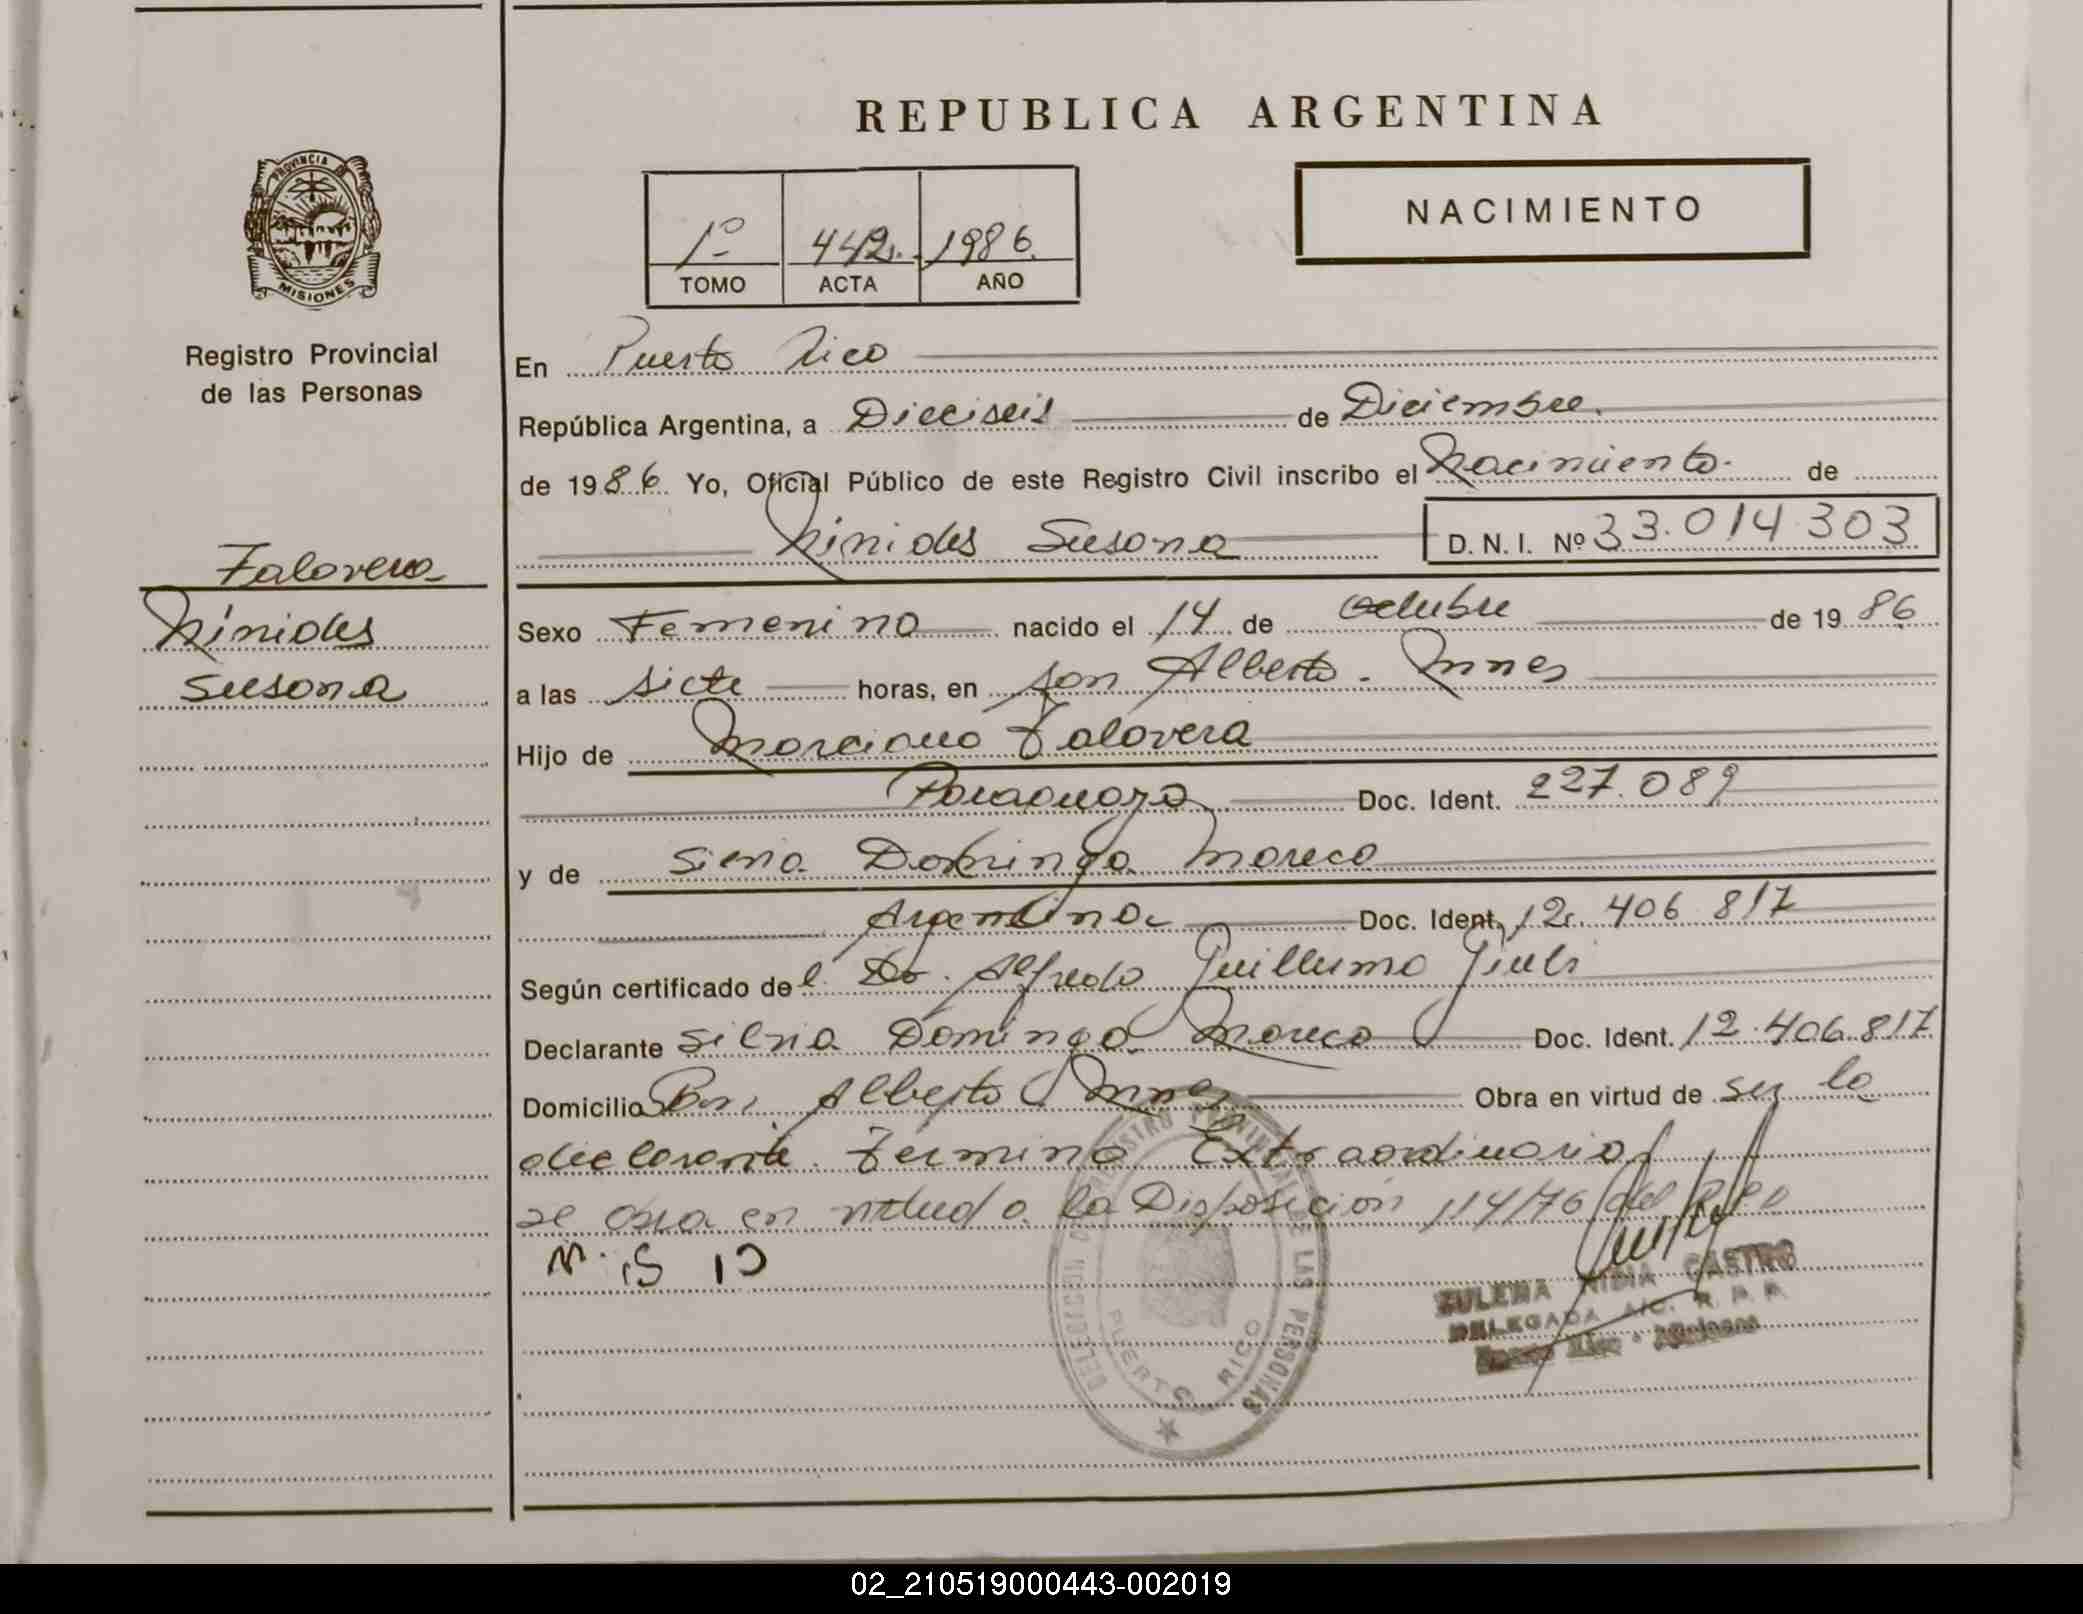 REPUBLICA ARGENTINA
PROVINCIA DE MISIONES
Registro Provincial
de las Personas
1º 442 1986
TOMO ACTA AÑO
NACIMIENTO
En Puerto Rico
República Argentina, a Dieciseis de Diciembre
de 1986 Yo, Oficial Público de este Registro Civil inscribo el Nacimiento de
Ninides Susana D. N. I. Nº 33.014.303
Talavera
Ninides
Susana
Sexo Femenino nacido el 14 de Octubre de 1986
a las siete horas, en Alberto. Mnes
Hijo de Marciano Talavera
Paraguayo Doc. Ident. 227.089
y de Dominga
Argentina Doc. Ident. 12.406.817
Según certificado del Dr. Alfredo Guillermo
Declarante Silvia Dominga Doc. Ident. 12.406.817
Domicilio Alberto Mnes Obra en virtud de ser la
declarante. Termino Extraordinario
se obra en virtud a la Disposición 114/76 del
DELEGACION DEL REGISTRO PROVINCIAL DE LAS PERSONAS
PUERTO RICO
ZULEMA NIDIA CASTRO
DELEGADA A/C. R. P. P.
Puerto Rico - Misiones
02_210519000443-002019